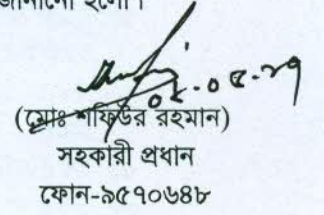 জানানো হলো।
(মোঃ শফিউর রহমান)
সহকারী প্রধান
ফোন-৯৫৭০৬৪৮